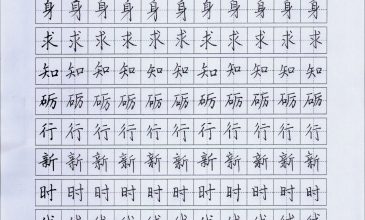 身身身身身身身身身身
求求求求求求求求求求
知知知知知知知知知知
砺砺砺砺砺砺砺砺砺砺
行行行行行行行行行行
新新新新新新新新新新
时时时时时时时时时时
代代代代代代代代代代